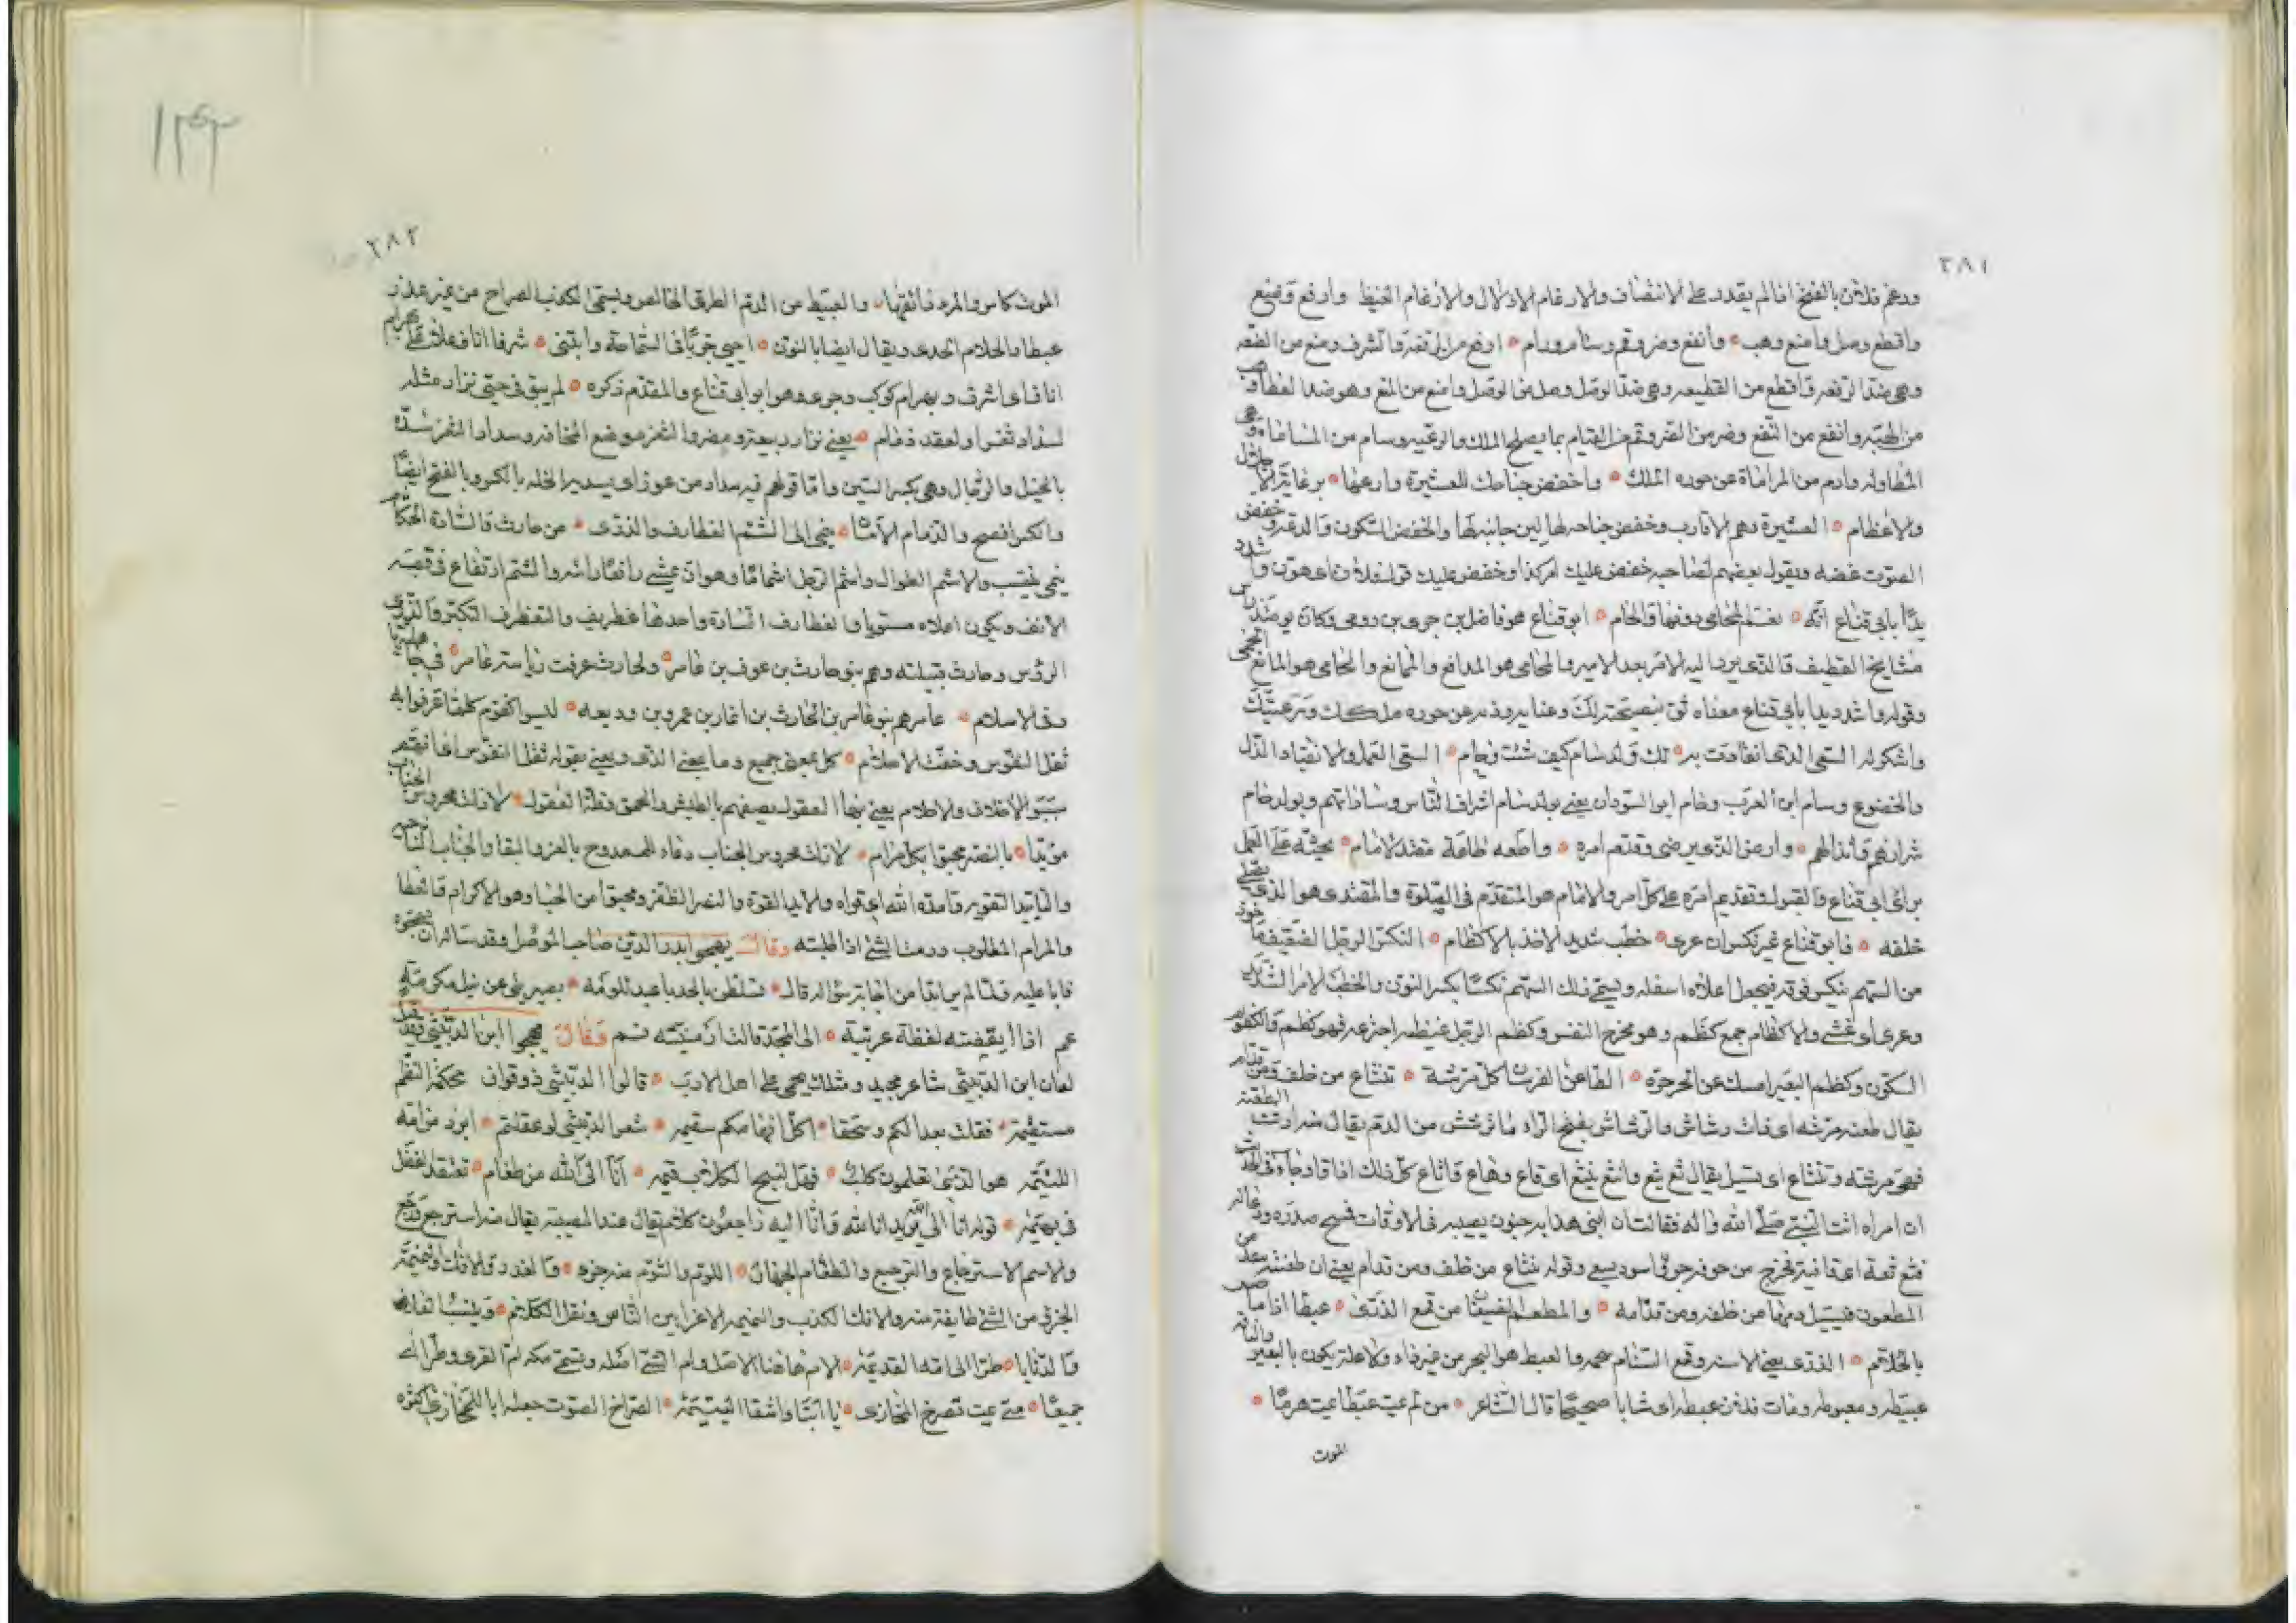 ٣٨١
ورغم فلان بالفتح اذا لم يقدر على الانتصاف والارغام الاذلال والارغام الغيظ وارفع وضع
واقطع وصل وامنع وهب وانفع وضر وقم وسام ورام ارفع من الرفعة والشرف وضع من الضعه
وهي ضد الرفعة واقطع من القطيعه وهي ضد الوصل وصل من الوصل وامنع من المنع وهو ضد العطا وهب
من الهبة وانفع من النفع وضر من الضر وقم من القيام بما يصلح الملك والرعيه وسام من المساماة وهي
المطاوله ورام من المراماة عن حوزه الملك واخفض جناحك للعشيرة وارعها برعاية الاجلال
والاعظام العشيرة وهم الاقارب وخفض جناحه لها لين جانبه لها والخفض السكون والدعة وخفض
الصوت غضه ويقول بعضهم لصاحبه خفض عليك امر كذا وخفض عليك قول فلان اي هون واشدد
يدا بابي قناع انه نعم المحامي دونها والحام ابو قناع هو فاضل بن جرى بن روحى وكان يومئذ راس
مشايخ القطيف والذي يرد اليه الامر بعد الامير والمحامي هو المدافع والممانع والحامي هو المانع المحمي
وقوله واشدد يدا بابي قناع معناه ثق بنصيحته لك وعنايه وذبه عن حوزه ملكك ورعيتك
واشكر له السعى الذي انقادت به لك ولد سام كيف شئت وحام السعى العمل والانقياد الذل
والخضوع وسام ابن العرب وحام ابو السودان يعني بولد سام اشراف الناس وساداتهم وبولد حام
شرارهم وانذالهم وارض الذي يرضى وقدم امره واطعه طاعة مقتد لامام يحثه على العمل
براي ابي قناع والقبول وتقديم امره على كل امر والامام هو المتقدم في الصلوة والمقتدى هو الذي يصلي
خلفه فابو قناع غير نكس ان عرى خطب شديد الاخذ بالاكظام النكس الرجل الضعيف ماخوذ
من السهم ينكس فوقه فيجعل اعلاه اسفله ويسمى ذلك السهم نكسا بكسر النون والخطب الامر الشديد
وعرى اي غشى والاكظام جمع كظم وهو مخرج النفس وكظم الرجل غيظه اجترعه فهو كظيم والكظوم
السكون وكظم البعير امسك عن الجره الطاعن الفرسان كل مرشة تنثاع من خلف ومن قدام
يقال طعنه مرشه اي ذات رشاش والرشاش بفتح الراء ما ترشش من الدم يقال منه ارشت الطعنة
فهي مرشه وتنثاع اي تسيل يقال ثع يثع وانثع ينثع اي قاع وهاع واثاع كل ذلك اذا قاء وجاء في الحديث
ان امراه اتت النبي صلى الله واله فقالت ان ابني هذا به جنون يصيبه في الاوقات فمسح صدره ودعا له
فثع ثعة اي قا فخرج من جوفه جرو اسود يسعى وقوله تنثاع من خلف ومن قدام يعني ان طعنته من بعد
المطعون فيسيل دمها من خلفه ومن قدامه والمطعم الضيفان من قمع الذرى عبطا اذا ما ضن
بالجلام الذرى يعني الاسنمه وقمع السنام شحمه والعبط هو النحر من غير داء ولا علة يكون بالبعير والناقه
عبيطه ومعبوطه ومات فلان عبطه اي شابا صحيحا قال الشاعر من لم يمت عبطا يمت هرما
الموت
٣٨٢
الموت كاس والمرء ذائقها والعبيط من الدم الطرى الخالص ويسمى الكذب الصراح من غير عذر
عبطا والجلام الجدى ويقال ايضا بالنون احيى جريا في السماحة وابتنى شرفا اناف على بهرام
اناف اي اشرف وبهرام كوكب وجرى هو ابو ابي قناع والمقدم ذكره لم يبق في حيي نزار مثله
لسداد ثغر او لعقد ذمام يعني نزار ربيعة ومضر والثغر موضع المخافه وسداد الثغر سده
بالخيل والرجال وهي بكسر السين واما قولهم فيه سداد من عوز اي يسد به الخلة بالكسر وبالفتح ايضا
والكسر افصح والذمام الامان ينمى الى الشم الغطارف والذرى من حارث والسادة الحكام
ينمى ينتسب والاشم الطوال واشم الرجل اشماما وهو ان يمشى رافعا راسه والشم ارتفاع في قصبه
الانف ويكون اعلاه مستويا والغطارف السادة واحدها غطريف والتغطرف التكبر والذرى
الروس وحارث قبيلته وهم بنو حارث بن عوف بن عامر ولحارث عرفت رئاسة عامر في جاهلية
وفي الاسلام عامر هم بنو عامر بن الحارث بن انمار بن عمرو بن وديعه ليسوا كقوم كلما عرفوا به
ثقل النفوس وخفة الاحلام كل بمعنى جميع وما بمعنى الذي ويعني بقوله ثقل النفوس اي انهم
سيئو الاخلاق والاحلام يعني بها العقول يصفهم بالطيش والحمق وقلة العقول لا زلت محروس الجناب
مؤيدا بالنصر محبوا بكل مرام لا زلت محروس الجناب دعاء للممدوح بالعز والبقا والجناب الناحيه
والتاييد التقويه وايده الله اي قواه والايد القوة والنصر الظفر ومحبوا من الحبا وهو الاكرام والعطا
والمرام المطلوب ورمت الشئ اذا طلبته وقال يهجو ابدر الدين صاحب الموصل وقد ساله ان يهجوه
فابا عليه فلما لم ير بدا من اجابة سؤاله قال تسلطن بالحدبا عبد للومه بصير بلى عن نيل مكرمة
عم اذا ايقضته لفظة عربية الى المجد قالت ارمنيته نم وقال يهجو ابن الدبيثي وقد نقل
لعان ابن الدبيثي شاعر مجيد ومثلك يخفى على اهل الادب قالوا الدبيثي ذو قواف محكمة النظم
مستقيمه فقلت بعدا لكم وسحقا اكل افهامكم سقيمه شعر الدبيثي لو عقلتم ابرد من امه
اللئيمه هو الذي تعلمون كلب فهل لنبح الكلاب قيمه انا الى الله من طغام تعتقد الفضل
في بهيمه قوله انا الى الله يريد انا لله وانا اليه راجعون كلام يقال عند المصيبه يقال منه استرجع ورجع
والاسم الاسترجاع والترجيع والطغام الجهال اللوم والشوم منه جزء والغدر والافك والنميمه
الجزء من الشئ طايفة منه والافك الكذب والنميمه الاغرا بين الناس ونقل الكلام وينسب العار
والدنايا طرا الى امه القديمه الام هاهنا الاصل وام الشئ اصله وتسمى مكه ام القرى وطرا اي
جميعا متى يمت تصرخ المخازى يا ابتا واشقا اليتيمه الصراخ الصوت جعله ابا للمخازى لكثره